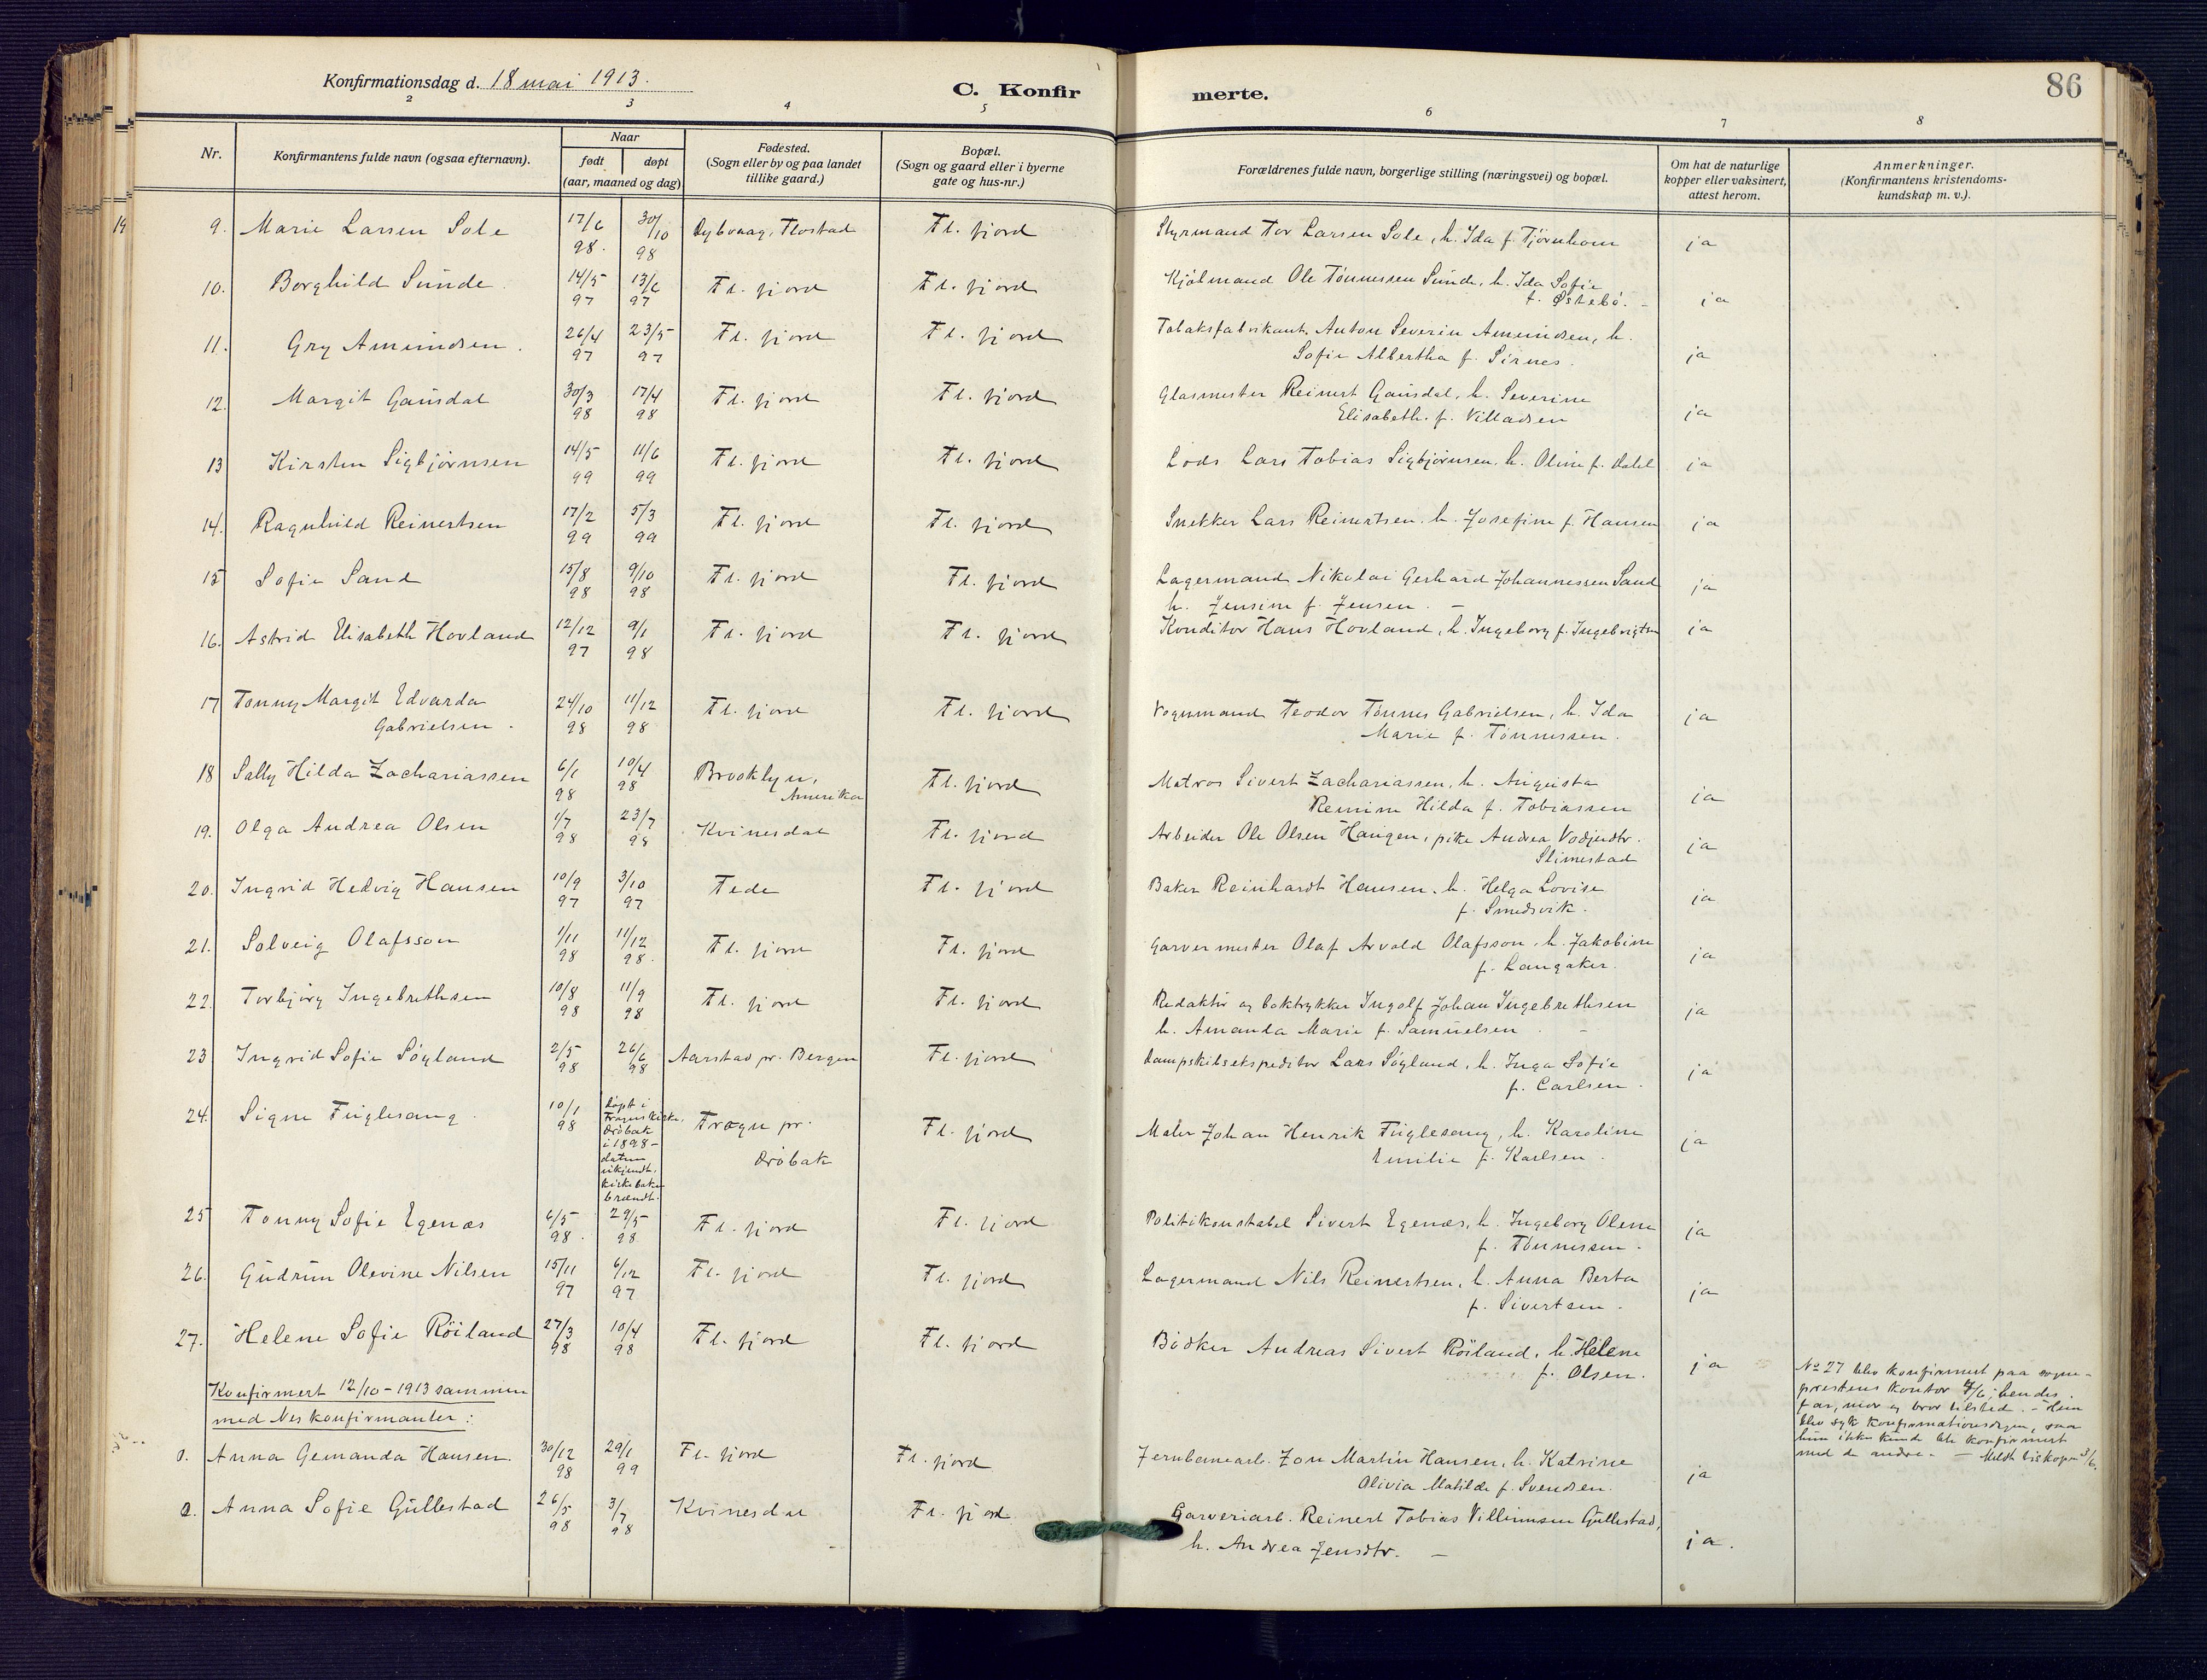 Konfirmationsdag d. 18 mai 1913.
C. Konfirmerte.
86
2 3 4 5 6 7 8
Nr.
Konfirmantens fulde navn (ogsaa efternavn).
Naar
født
døpt
(aar, maaned og dag)
Fødested.
(Sogn eller by og paa landet
tillike gaard.)
Bopæl.
(Sogn og gaard eller i byerne
gate og hus-nr.)
Forældrenes fulde navn, borgerlige stilling (næringsvei) og bopæl.
Om hat de naturlige
kopper eller vaksinert,
attest herom.
Anmerkninger.
(Konfirmantens kristendoms-
kundskap m. v.).
19
9. Marie Larsen Sole 17/6 98. 30/10 98 Dybvaag, Flostad Fl. fjord Styrmand Tor Larsen Sole, h. Ida f. Tjørnhom ja
10. Borghild Sunde 14/5 97 13/6 97 Fl. fjord Fl. fjord Kjølmand Ole Tønnessen Sunde, h. Ida Sofie
f. Østebø. - ja
11. Gry Amundsen. 26/4 97 23/5 97 Fl. fjord Fl. fjord Tobaksfabrikant. Anton Severin Amundsen, h.
Sofie Albertha f. Sirnes. ja
12. Margit Gausdal 30/3 98 17/4 98 Fl. fjord Fl. fjord Glasmester Reinert Gausdal, h. Severine
Elisabeth. f. Villadsen ja
13 Kirsten Sigbjørnsen 14/5 99 11/6 99 Fl. fjord Fl. fjord Lods Lars Tobias Sigbjørnsen, h. Oline f. Dahl ja
14. Ragnhild Reinertsen 17/2 99 5/3 99 Fl. fjord Fl. fjord Snekker Lars Reinertsen. h. Josefine f. Hansen ja
15 Sofie Sand 15/8 98 9/10 98 Fl. fjord Fl. fjord Lagermand Nikolai Gerhard Johannessen Sand
h. Jensine f. Jensen. - ja
16. Astrid Elisabeth Hovland 12/12 97 9/1 98 Fl. fjord Fl. fjord Konditor Hans Hovland, h. Ingeborg f. Ingebrigtsn ja
17 Tonny Margit Edvarda
Gabrielsen. 24/10 98 11/12 98 Fl. fjord Fl. fjord Vognmand Teodor Tønnes Gabrielsen, h. Ida
Marie f. Tønnessen. ja
18 Sally Hilda Zachariassen 6/1 98 10/4 98 Brooklyn,
Amerika Fl. fjord Matros Sivert Zachariassen, h. Augusta
Remine Hilda f. Tobiassen ja
19. Olga Andrea Olsen 1/7 98 23/7 98 Kvinesdal Fl. fjord Arbeider Ole Olsen Haugen, pike Andrea
Slimestad ja
20. Ingrid Hedvig Hansen 10/9 97 3/10 97 Fede Fl. fjord Baker Reinhardt Hansen. h. Helga Lovise
f. Smedsvik. ja
21. Solveig Olafsson 1/11 98 11/12 98. Fl. fjord Fl. fjord Garvermester Olaf Arvold Olafsson, h. Jakobine
f. Langaker. ja
22. Torbjørg Ingebrethsen 10/8 98 11/9 98 Fl. fjord Fl. fjord Redaktør og boktrykker Ingolf Johan Ingebrethsen
h. Amanda Marie f. Samuelsen. - ja
23 Ingrid Sofie Søyland 2/5 98 26/6 98 Aarstad pr. Bergen Fl. fjord Dampskibsekspeditør Lars Søyland, h. Inga Sofie
f. Carlsen. ja
24. Signe Fuglesang. 10/1 98 Døpt i
Frogns kirke,
Drøbak
i 1898-
datum
ukjendt.
kirkebøker
brændt. Frogn pr.
Drøbak Fl. fjord Maler Johan Henrik Fuglesang, h. Karoline
Emilie f. Karlsen. ja
25 Tonny Sofie Egenæs 6/5 98. 29/5 98 Fl. fjord Fl. fjord Politikonstabel Sivert Egenæs, h. Ingeborg Olene
f. Tønnessen. ja
26. Gudrun Olevine Nilsen 15/11 97 6/12 97 Fl. fjord Fl. fjord Lagermand Nils Reinertsen, h. Anna Berta
f. Sivertsen. ja
27. Helene Sofie Røiland 27/3 98 10/4 98 Fl. fjord Fl. fjord Bødker Andreas Sivert Røiland, h. Helene
f. Olsen. ja
No 27 blev konfirmert paa sogne-
prestens kontor 7/6; hendes
far, mor og bror tilsted. - Hun
blev syk konfirmationsdagen, saa
hun ikke kunde bli konfirmert
med de andre. - Meldt biskopen 3/6.
Konfirmert 12/10 - 1913 sammen
med Nes konfirmanter:
Anna Gemanda Hansen. 30/12 98 29/1 99 Fl. fjord Fl. fjord Jernbanearb. Martin Hansen, h. Katrine
Olivia Matilde f. Svendsen. ja
Anna Sofie Gullestad 26/5 98 3/7 98 Kvinesdal Fl. fjord Garveriarb. Reinert Tobias Villumsen Gullestad,
h. Andrea Jensdtr. - ja.